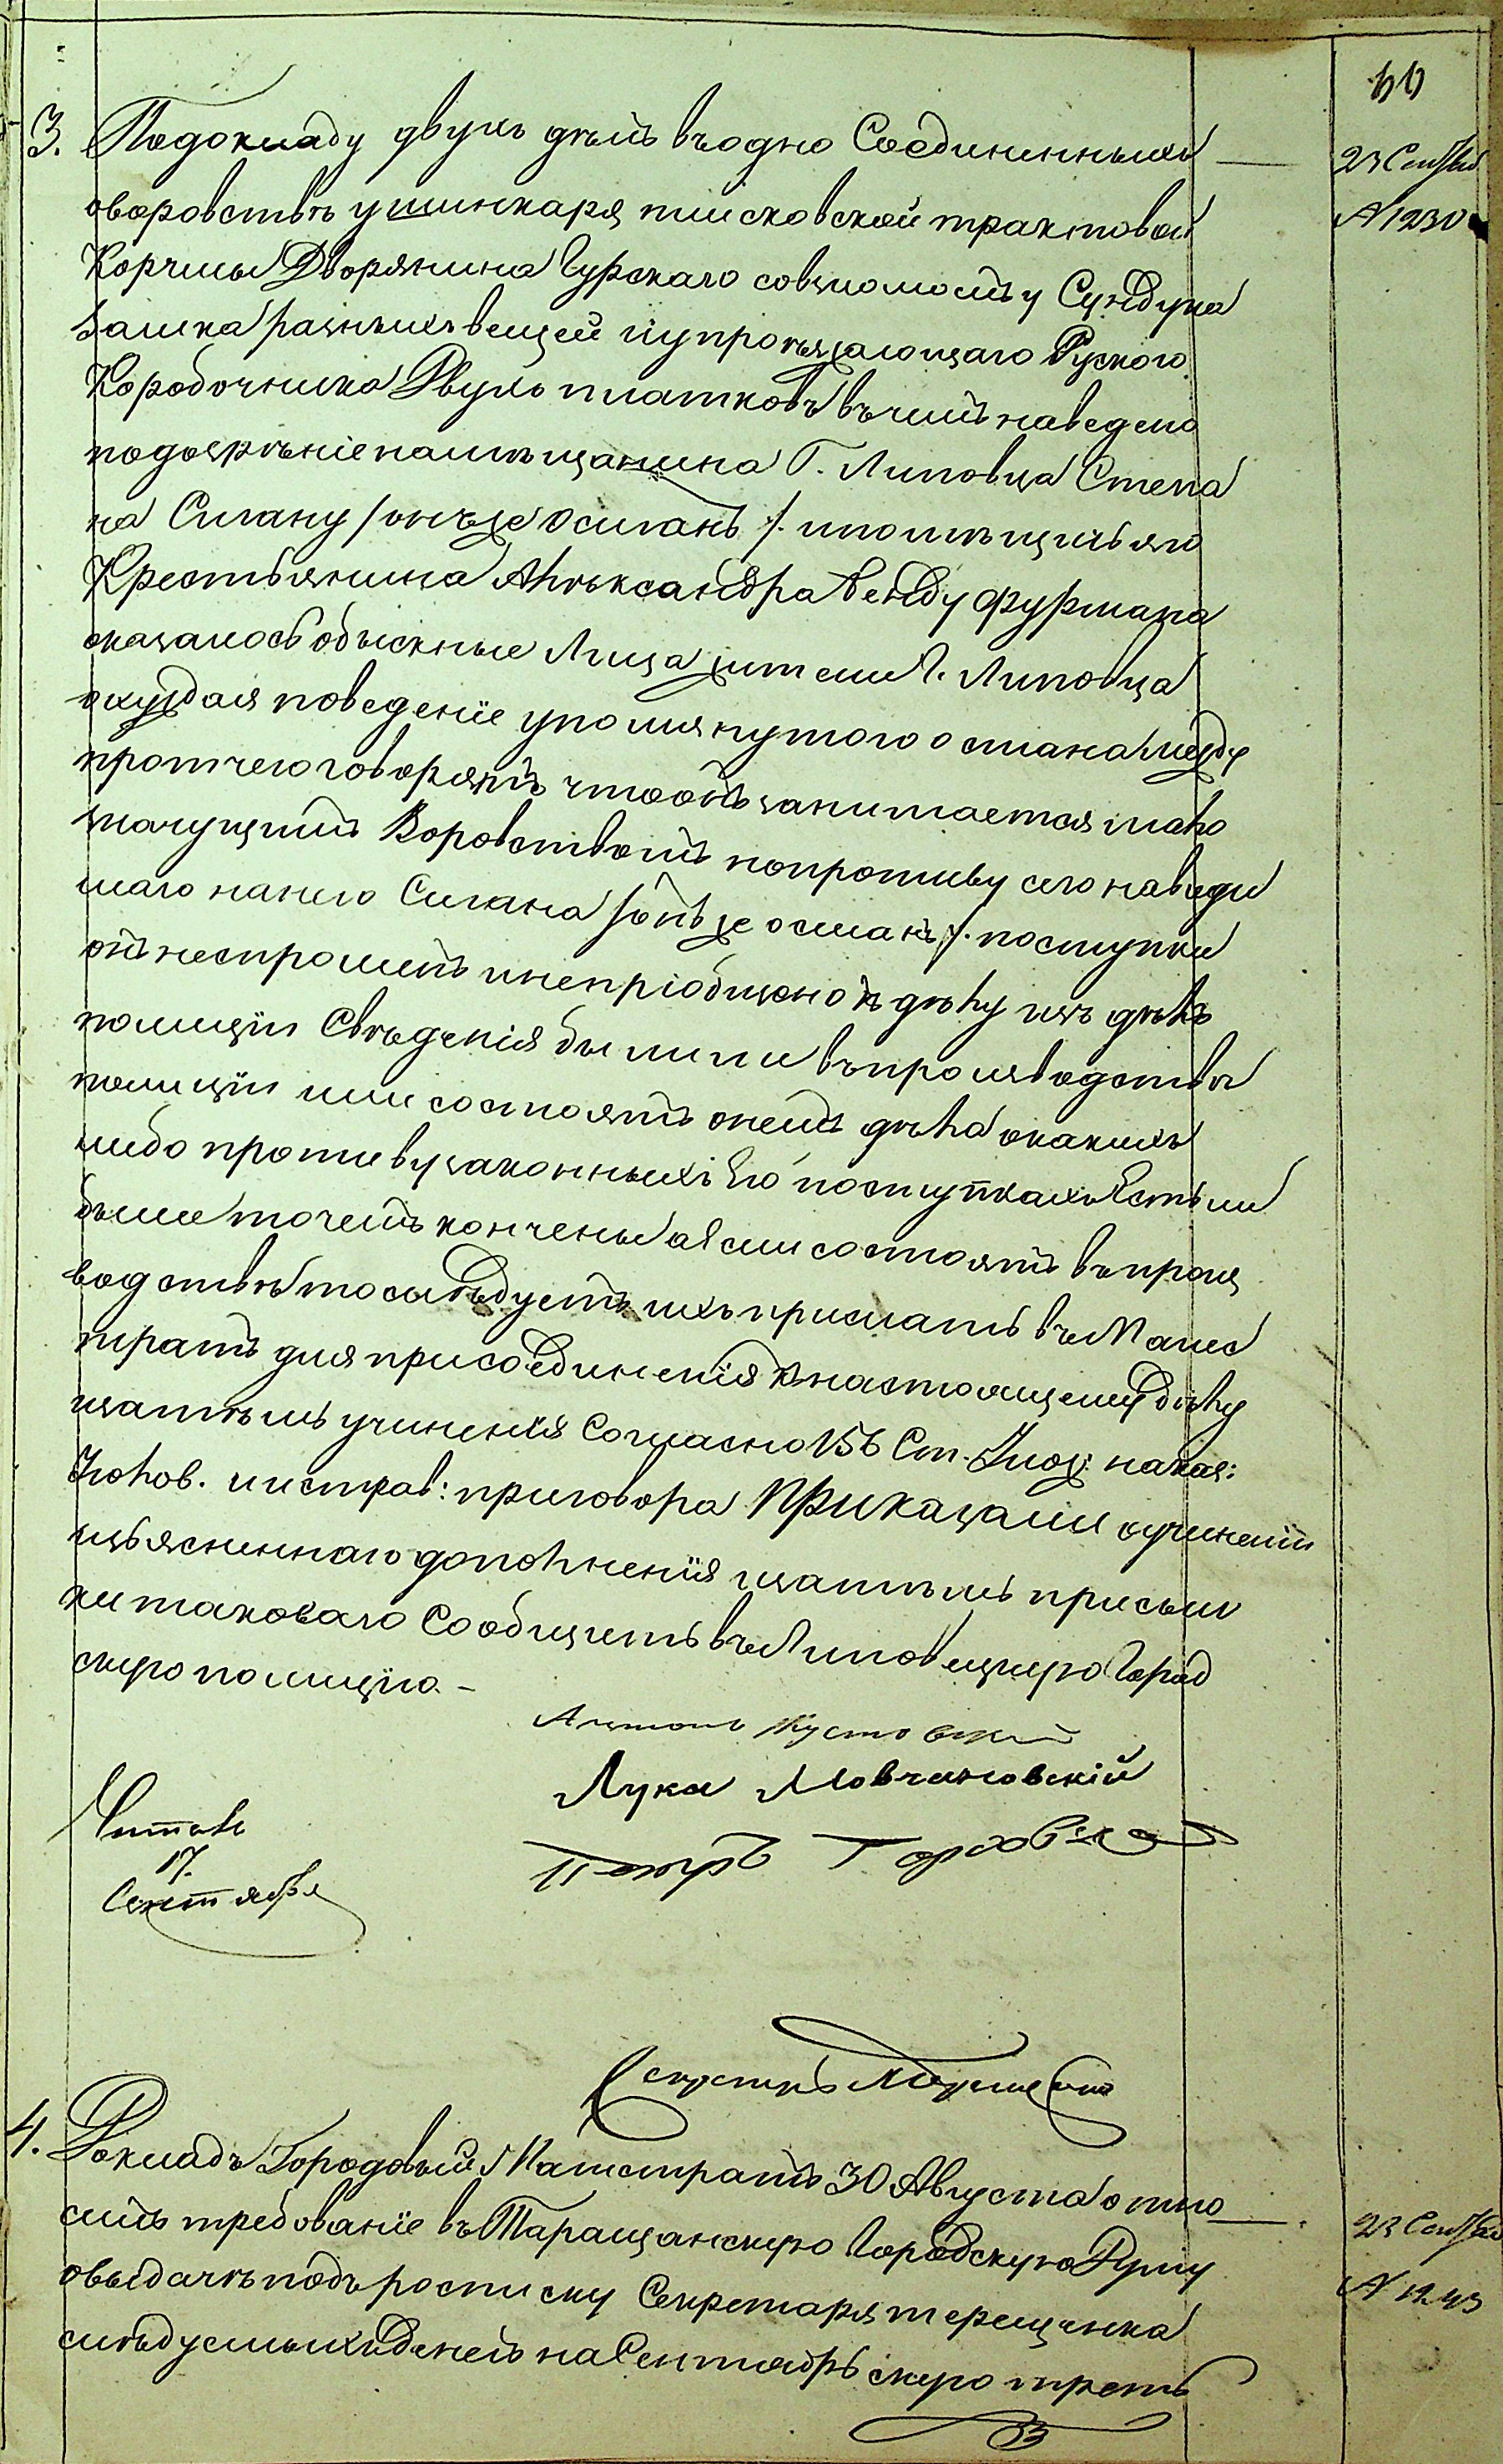 60
3. Подокладу двухъ дѣлъ въодно Соединенныхъ
23 Сентября
№ 1230
оворовствѣ ушинкаря плисковской трактовой
Корчмы Дворянина Гурскаго совзломомъ у Сундука
замка разныхъ вещей иупроѣзжающаго Руского
Коробочника Двухъ платковъ въчемъ наведено
подозрѣніе намѣщанина Г. Липовца Степа
на Слиану /онъже Ослианъ/. ипомѣщичьяго
Крестьянина Александра Венду фурмана
оказалось обыскные Лица жители Г. Липовца
охуждая поведеніе упомянутого ослиана между
протчего говорятъ чтоонъ занимается мало
значущимъ Воровствомъ нопротиву сего наведе
наго нанего Слиана /онъ же ослианъ/. поступки
онъ неспрошенъ инепріобщено къ дѣлу изъ дѣлъ
полиціи Свѣдѣнія былили въпроизводствѣ
полиціи или состоятъ онемъ дѣла окакихъ
либо противузаконныхъ Его поступкахъ Естьли
были точемъ кончены аЕсли состоятъ въпроиз
водствѣ тослѣдуетъ ихъ прислать въ Магис
тратъ для присоединенія кнастоящему дѣлу
изатѣмъ учиненія Согласно 156 Ст. Улож: наказ:
Уголов. иисправ: приговора Приказали оучиненіи
изъясненнаго дополненія изатѣмъ присыл
ки таковаго Сообщить въ Липовецкую Город
скую полицію. -
Антонъ
Лука Мовчановскій
Петръ
Читалъ
17.
Сентября
Секретарь
4. Докладъ Городовый Магистратъ 30 Августа отно
сится требованіе въ Таращанскую Городскую Думу
23 Сентября
овыдачѣ подъ росписку Секретаря терещенка
№ 1243
слѣдуемыхъ денегъ на Сентябрьскую треть